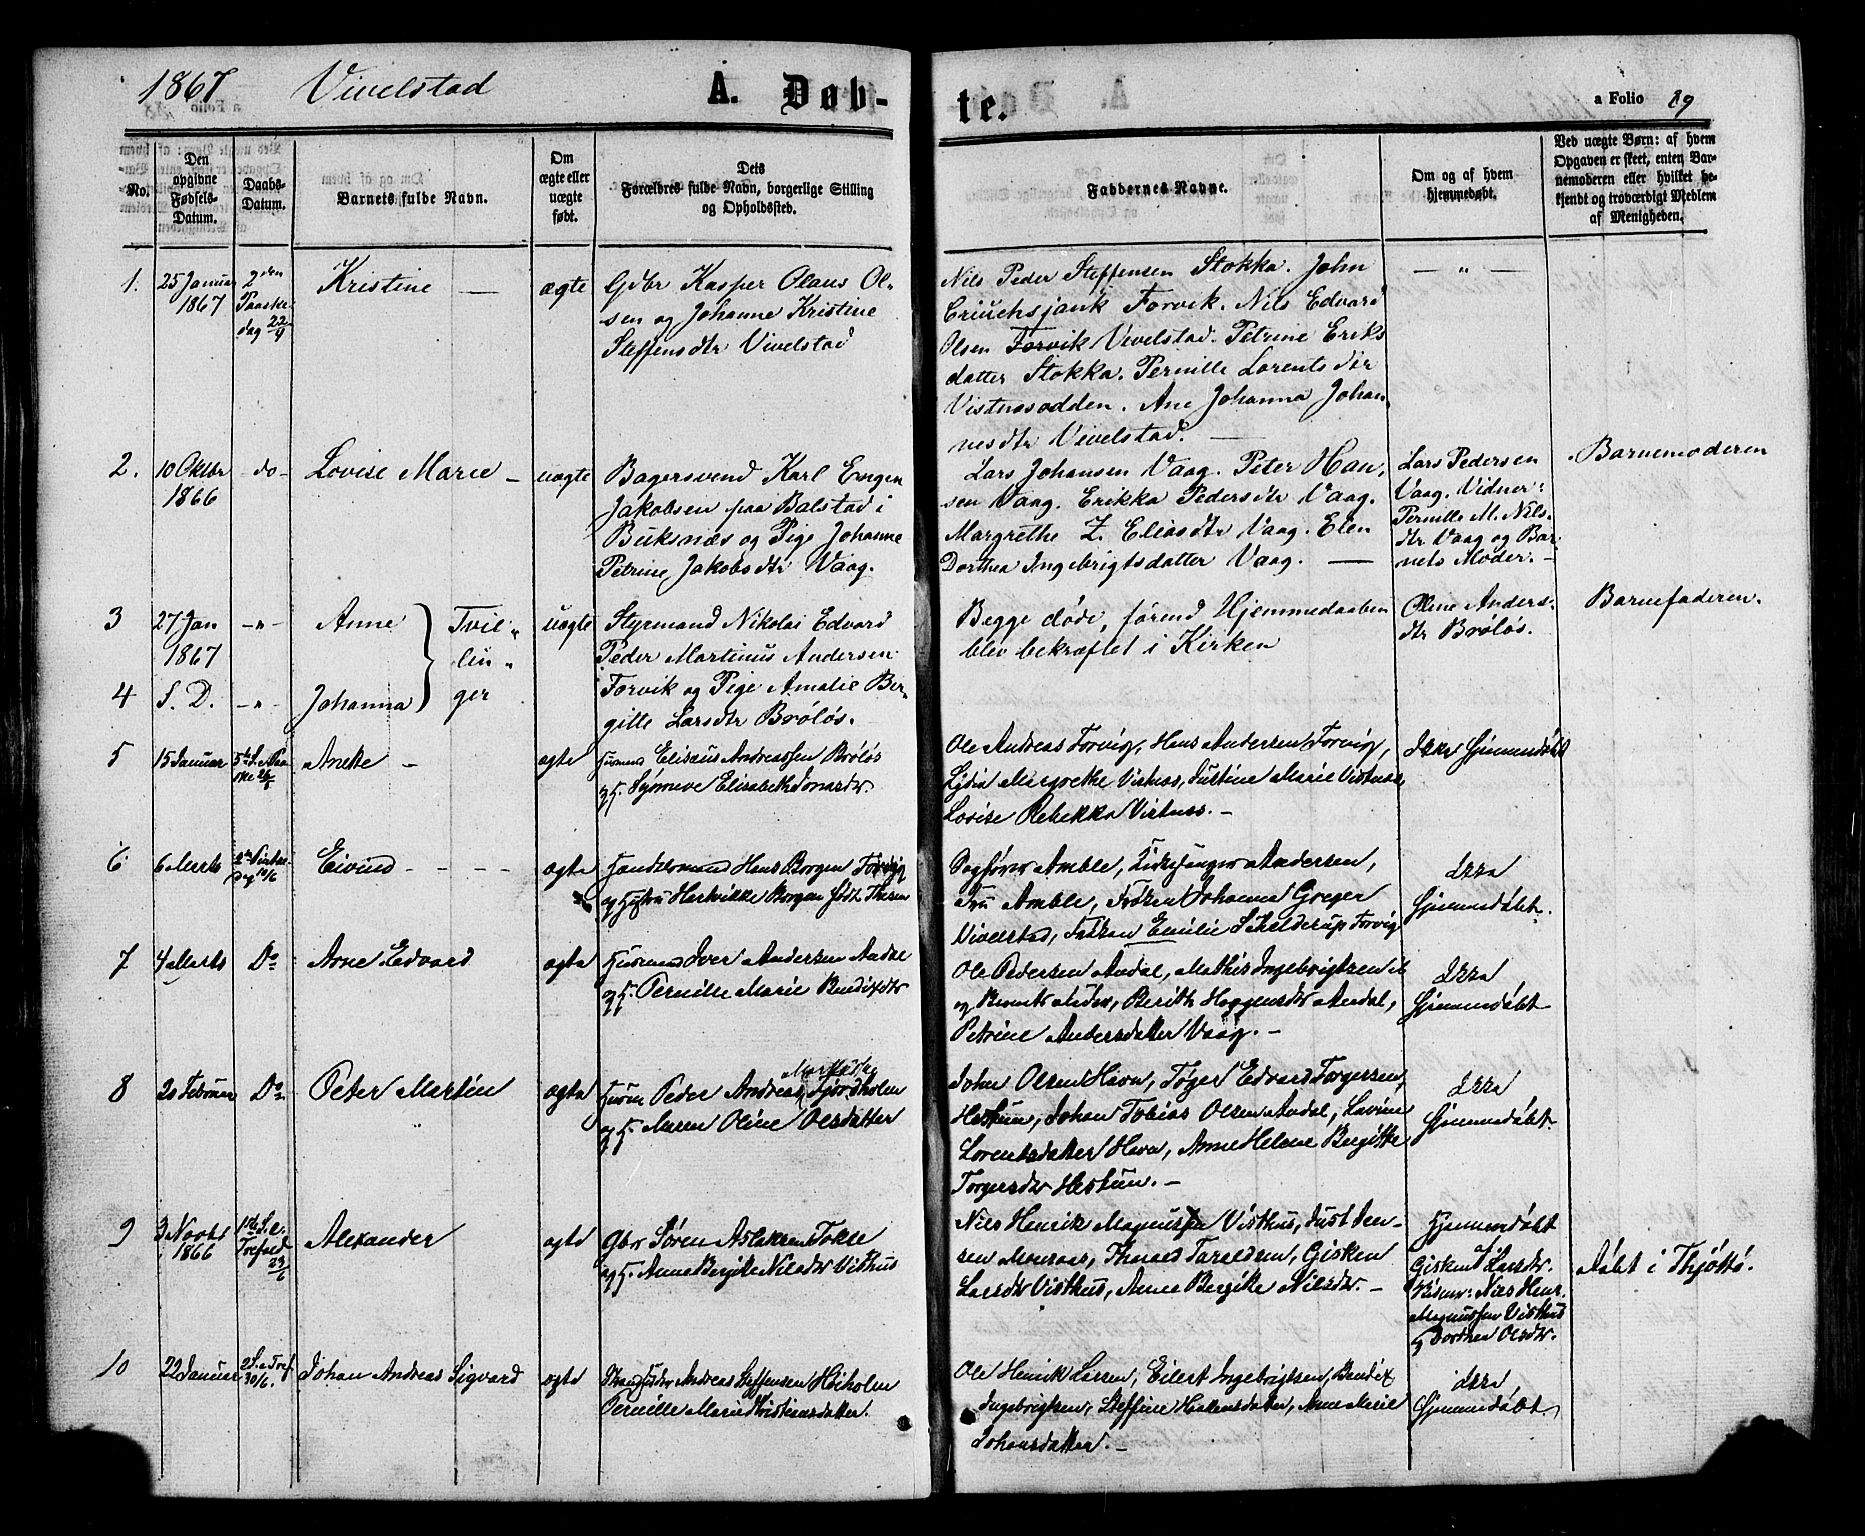 1867 Vivelstad A. Døb-
te. a Folio 89
No.
Den opgivne Fødsels-Datum.
Daabs-Datum.
Barnets fulde Navn.
Om ægte eller uægte født.
Dets Forældres fulde Navn, borgerlige Stilling og Opholdssted.
Faddernes Navne.
Om og af hvem hjemmedøbt.
Ved uægte Børn: af hvem Opgaven er skeet, enten Barnemoderen eller hvilket bekjendt og troværdigt Medlem af Menigheden.
1. 25 Januar 1867 2den Paaskedag 22/9 Kristine — ægte
Gdbr Kasper Olaus Ol-
sen og Johanne Kristine
Steffensdtr Vivelstad
Nils Peder Steffensen Stokka. John
Forvik. Nils Edvard
Olsen Forvik Vivelstad. Petrine Eriks
datter Stokka. Pernille Lorentsdtr
Vistnesodden. Ane Johanna Johan
nesdtr Vivelstad. —
— " —
2. 10 Oktbr 1866 -do- Lovise Marie - uægte
Bagersvend Karl Eugen
Jakobsen paa Balstad i
Buksnæs og Pige Johanne
Petrine Jakobsdtr Vaag.
Lars Johansen Vaag. Peter Han,
sen Vaag. Erikka Pedersdtr Vaag.
Margrethe Z. Eliasdtr Vaag. Elen
Dorthea Ingebrigtsdatter Vaag. —
Lars Pedersen
Vaag. Vidner:
Pernille M. Nils-
dtr Vaag og Bar-
nets Moder. -
Barnemoderen
3 27 Jan 1867 -"- Anne Tvil- uægte
lin-
4 S. D. -"- Johanna ger
Styrmand Nikolai Edvard
Peder Martinus Andersen
Forvik og Pige Amalie Ber-
gitte Larsdtr Brøløs.
Begge døde, førend Hjemmedaaben
blev bekræftet i Kirken
Oline Anders-
dtr Brøløs.
Barnefaderen.
5 15 Januar 5te S. e. Paaske 26/5 Anette - ægte
Husmd Elisæus Andreassen Brøløs
og H. Synnove Elisabeth Jonasdtr.
Ole Andreas Forvig, Hans Andersen Forvig,
Lydia Margrethe Vistnes, Justine Marie Vistnes
Lovise Rebekka Vistnes. -
ikke Hjemmedøbt
6 6 Marts 2den Pintsedag 10/6 Eivind - - - - ægte
Handelsmand Hans Borgen Forvig
og Hustru Hartvikke Borgen født Thesen
Sagfører Amble, Kirkesanger Andersen,
Fru Amble, Frøken Johanna Greger
Vivelstad, Frøken Emilie Schelderup Forvig
ikke
Hjemmedøbt.
7 4 Marts Do Arne Edvard ægte
Husmand Iver Andersen Andal
og H. Pernille Marie Bendixdtr
Ole Pedersen Andal, Mathis Ingebrigtsen
Berith Haggensdtr Andal,
Petrine Andersdatter Vaag. -
ikke
Hjemmedøbt
8 20 Februar Do Peter Martin ægte
Husm Peder Andreas Fjordholm
og H. Maren Oline Olsdatter
John Olsen Havn, Tøger Edvard Torgersen,
Hestun, Johan Tobias Olsen Andal, Lavine
Lorentsdatter Havn, Anne Helene Bergitte
Torgersdtr Hestun. -
ikke
Hjemmedøbt
9 3 Novbr 1866 1ste S. e. Trefold 23/6 Alexander ægte
Gbr Søren Aslaksen Tokle
og H. Anne Bergitte Nilsdtr Visthus
Nils Henrik Magnussen Visthus, Just Jen-
sen Tharald Taraldsen, Gisken
Larsdtr Visthus, Anne Bergitte Nilsdtr. -
Hjemmedøbt
Gisken Larsdtr.
Vidner: Nils Henr.
Magnussen Visthus
og Dorthea Olsdtr.
Døbt i Thjøttø.
10 22 Januar 2 S. e. Tref. 30/6. Johan Andreas Sigvard ægte
Andreas Steffensen Høiholm
Pernille Marie Kristiansdatter.
Ole Henrik Larsen, Eilert Ingebrigtsen, Bendix
Ingebrigtsen, Steffine Hallensdatter, Anne Marie
Johansdatter. -
ikke
Hjemmedøbt.